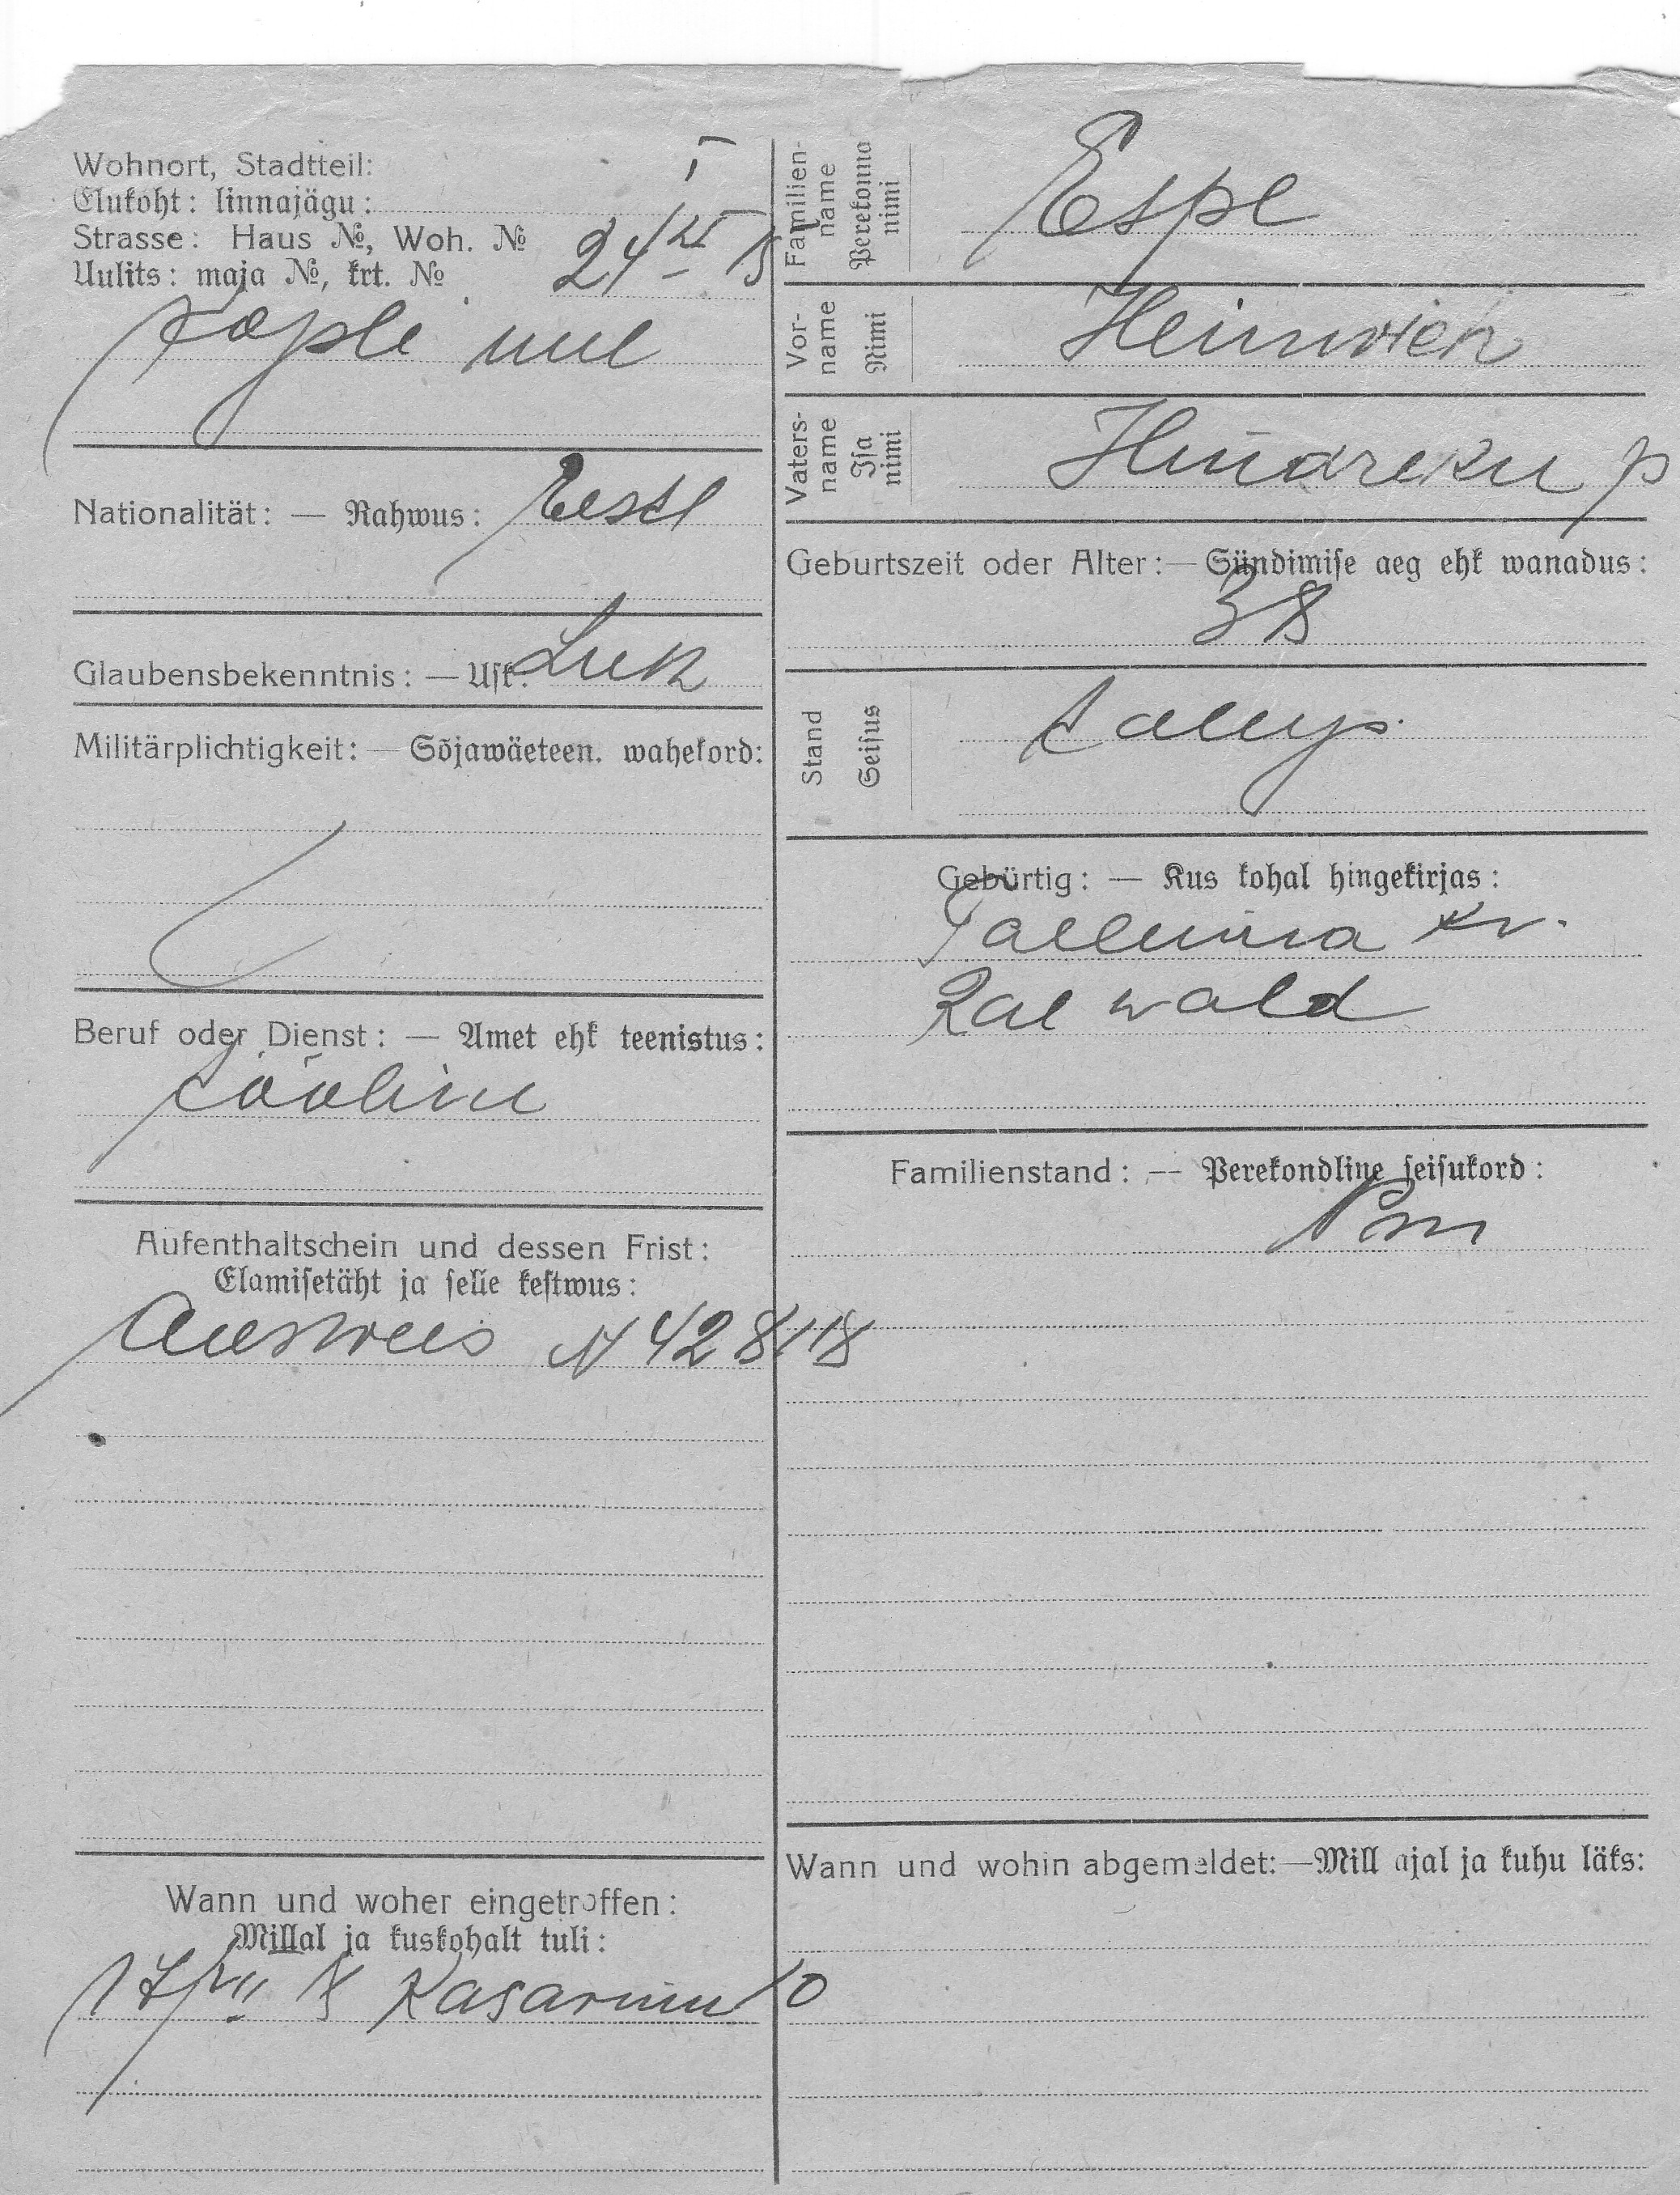 Wohnort, Stadtteil:
Elukoht: linnajägu:
I
Strasse: Haus №, Woh. №
Uulits: maja №, krt. №
24
Nationalität: — Rahwus: Eesti
Glaubensbekenntnis: — Usk: Luth
Militärplichtigkeit: — Sõjawäeteen. wahekord:
Beruf oder Dienst: — Amet ehk teenistus:
tööline
Aufenthaltschein und dessen Frist:
Elamisetäht ja selle kestwus:
Ausweis N 428118
Wann und woher eingetroffen:
Millal ja kuskohalt tuli:
Kasarmu 10
Familien-
name
Perekonna
nimi
Espe
Vor-
name
Nimi
Heinrich
Vaters-
name
Isa
nimi
Hindreku p
Geburtszeit oder Alter: — Sündimise aeg ehk wanadus:
38
Stand
Seisus
talup.
Gebürtig: — Kus kohal hingekirjas:
Tallinna kr.
Rae wald
Familienstand: — Perekondline seisukord:
Wann und wohin abgemeldet: — Mill ajal ja kuhu läks: